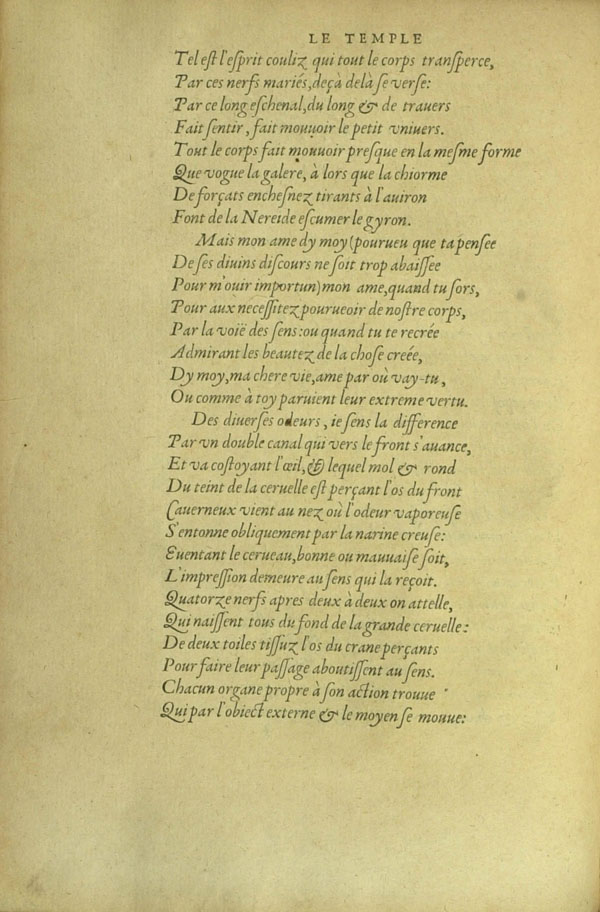 LE TEMPLE
Tel est l'esprit couliz qui tout le corps transperce,
Par ces nerfs mariés, deçà delà se verse:
Par ce long eschenal, du long & de trauers
Fait sentir, fait mouuoir le petit vniuers.
Tout le corps fait mouuoir presque en la mesme forme
Que vogue la galere, à lors que la chiorme
De forçats enchesnez tirants à l'auiron
Font de la Nereide escumer le gyron.
Mais mon ame dy moy (pourueu que ta pensee
De ses diuins discours ne soit trop abaissée
Pour m'ouir importun) mon ame, quand tu sors,
Pour aux necessitez pourueoir de nostre corps,
Par la voië des sens: ou quand tu te recrée
Admirant les beautez de la chose creée,
Dy moy, ma chere vie, ame par où vay-tu,
Ou comme à toy paruient leur extreme vertu.
Des diuerses odeurs, ie sens la difference
Par vn double canal qui vers le front s'auance,
Et va costoyant l'œil, & lequel mol & rond
Du teint de la ceruelle est perçant l'os du front
Cauerneux vient au nez où l'odeur vaporeuse
S'entonne obliquement par la narine creuse:
Euentant le cerueau, bonne ou mauuaise soit,
L'impression demeure au sens qui la reçoit.
Quatorze nerfs apres deux à deux on attelle,
Qui naissent tous du fond de la grande ceruelle:
De deux toiles tissuz l'os du crane perçants
Pour faire leur passage aboutissent au sens.
Chacun organe propre à son action trouue
Qui par l'obiect externe & le moyen se mouue: